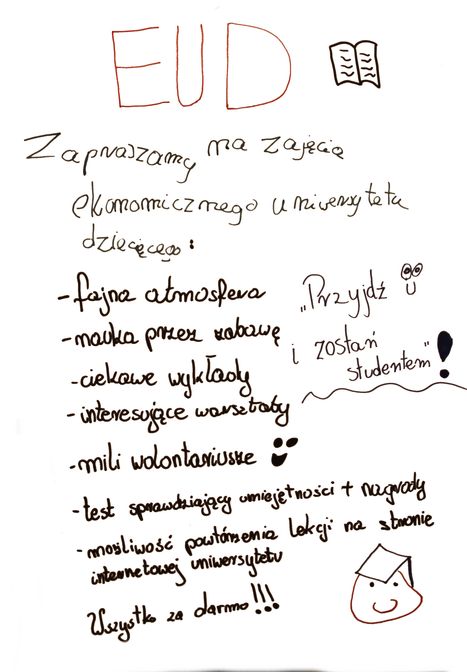 EUD
Zapraszamy na zajęcia
ekonomicznego uniwersytetu
dziecięcego:
-fajna atmosfera
-nauka przez zabawę
-ciekawe wykłady
-interesujące warsztaty
-mili wolontariusze
-test sprawdziający umiejętności + nagrody
-możliwość powtórzenia lekcji na stronie
internetowej uniwersytetu
Wszystko za darmo!!!
„Przyjdź
i zostań
studentem"!